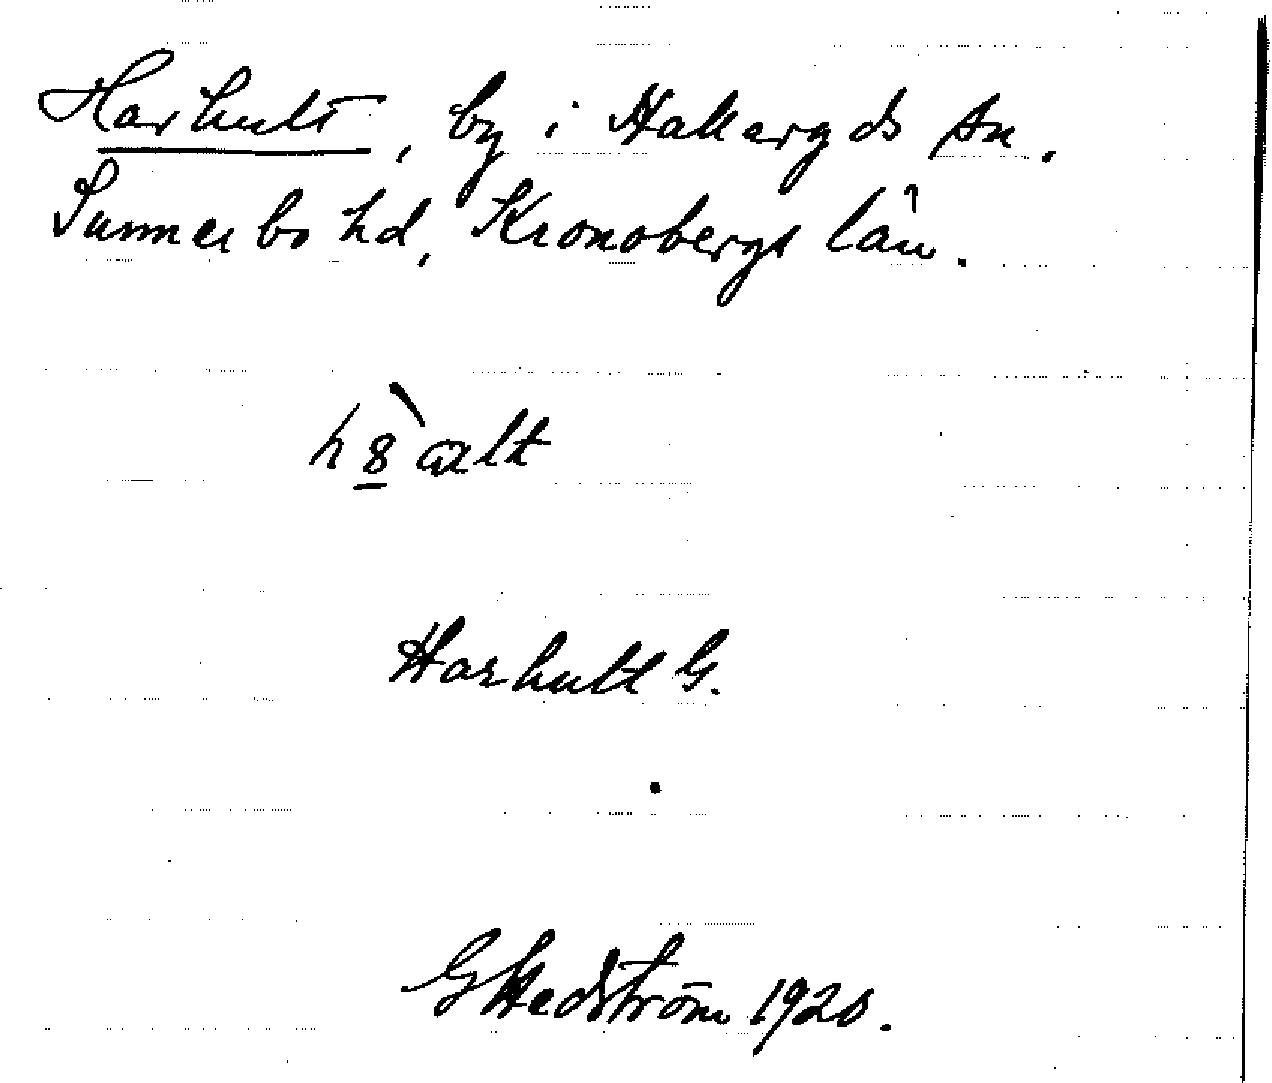 Harhult, by i Hallaryds sn.
Sunnerbo hd, Kronobergs län.
Harhult G.
G Hedström 1920.